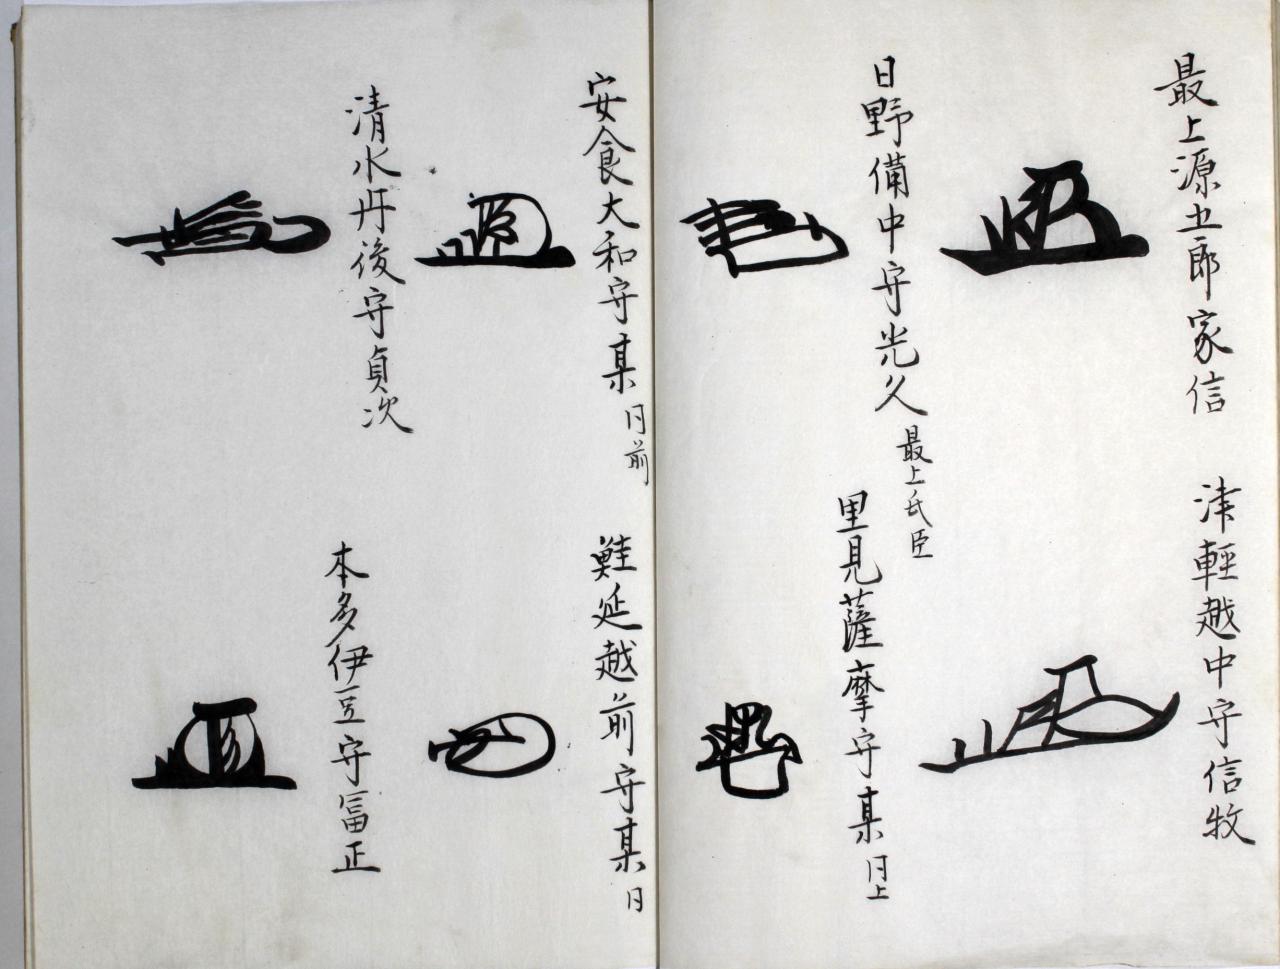 最上源五郎家信
津輕越中守信牧
日野備中守光久 最上氏臣
里見薩摩守某 同上
安食大和守某 同前
鮭延越前守某 同
清水丹後守貞次
本多伊豆守冨正